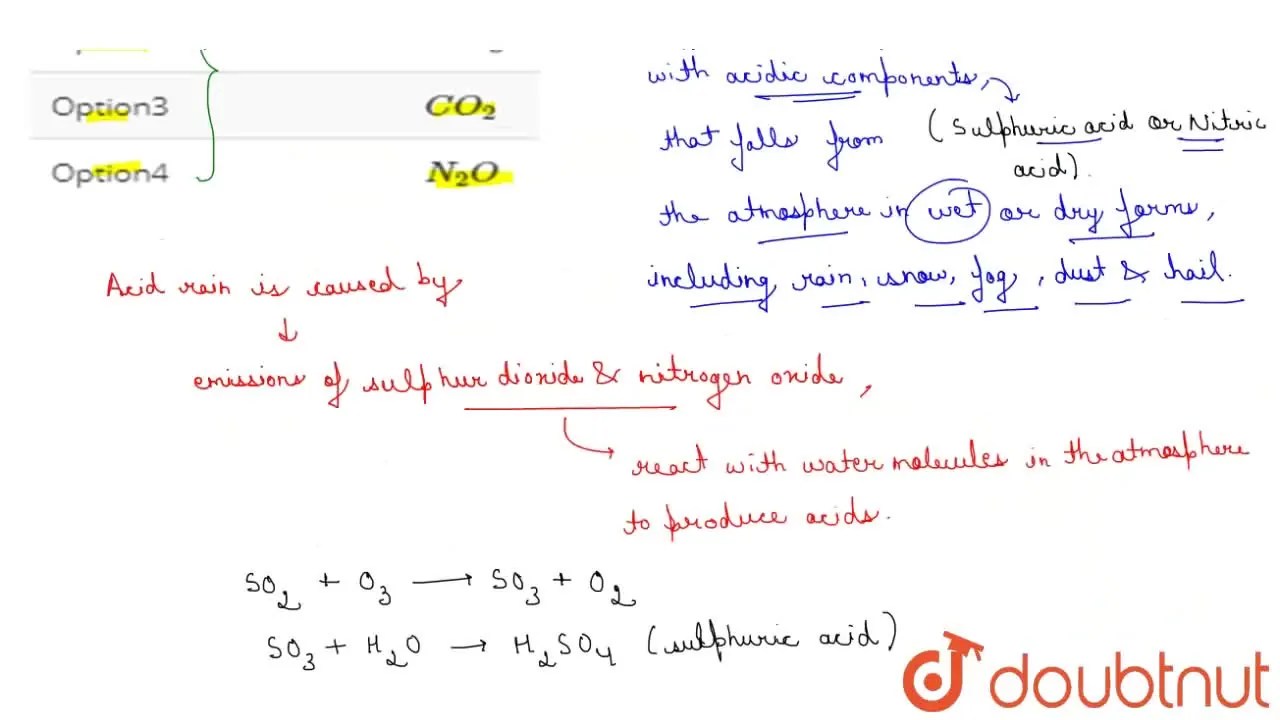 Option3 CO₂
Option4 N₂O
with acidic components,
(Sulphuric acid or Nitric
acid).
that falls from
the atmosphere in wet or dry forms,
including rain, snow, fog, dust & hail.
Acid rain is caused by
emissions of sulphur dioxide & nitrogen oxide,
react with water molecules in the atmosphere
to produce acids.
SO₂ + O₃ → SO₃ + O₂
SO₃ + H₂O → H₂SO₄ (sulphuric acid)
doubtnut